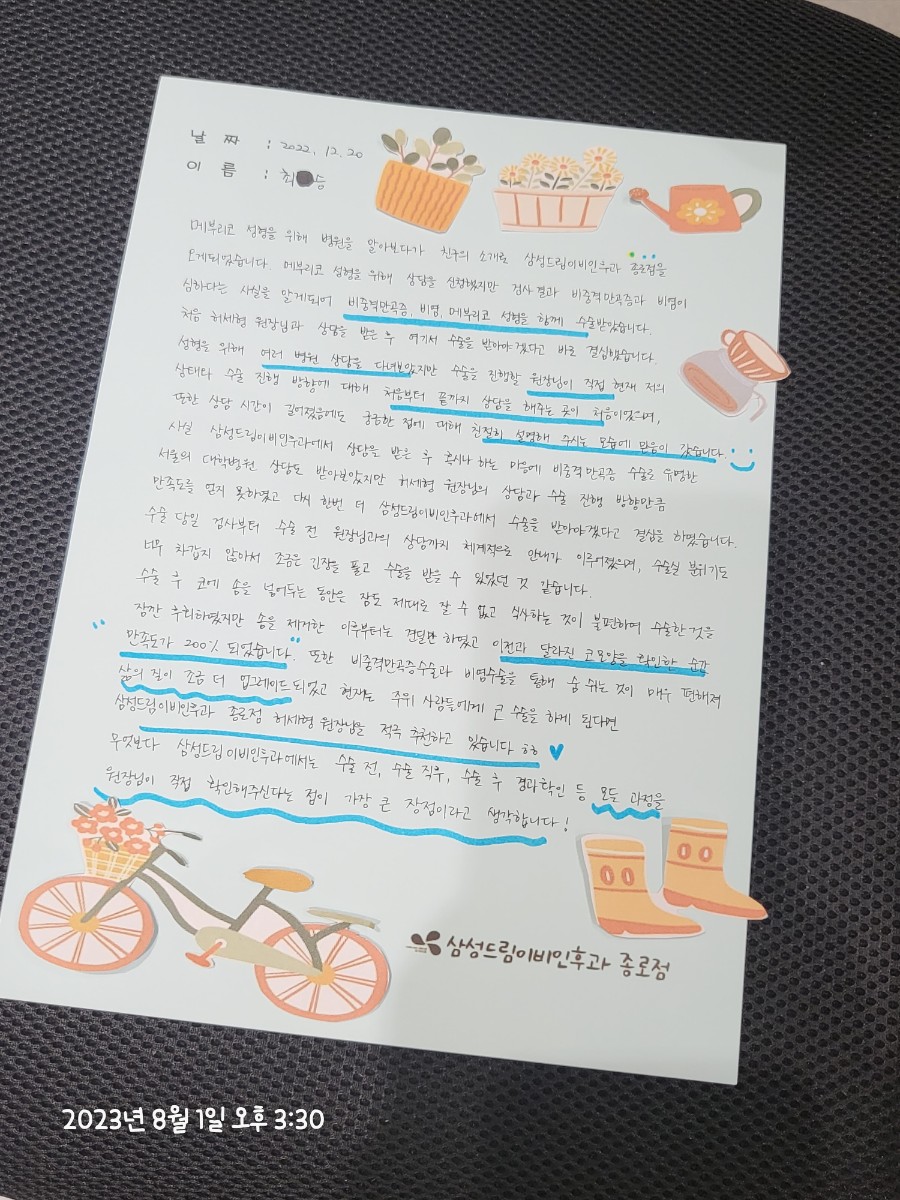 날 짜 : 2022. 12. 20
이 름 : 최 승
메부리코 성형을 위해 병원을 알아보다가 친구의 소개로 삼성드림이비인후과 종로점을
오게되었습니다. 메부리코 성형을 위해 상담을 신청했지만 검사 결과 비중격만곡증과 비염이
심하다는 사실을 알게되어 비중격만곡증, 비염, 메부리코 성형을 함께 수술받았습니다.
처음 허세형 원장님과 상담을 받은 후 여기서 수술을 받아야겠다고 바로 결심했습니다.
성형을 위해 여러 병원 상담을 다녀보았지만 수술을 진행할 원장님이 직접 현재 저의
상태와 수술 진행 방향에 대해 처음부터 끝까지 상담을 해주는 곳이 처음이었으며,
또한 상담 시간이 길어졌음에도 궁금한 점에 대해 친절히 설명해 주시는 모습에 믿음이 갔습니다.
사실 삼성드림이비인후과에서 상담을 받은 후 혹시나 하는 마음에 비중격 만곡증 수술로 유명한
서울의 대학병원 상담도 받아보았지만 허세형 원장님의 상담과 수술 진행 방향만큼
만족도를 얻지 못하였고 다시 한번 더 삼성드림이비인후과에서 수술을 받아야겠다고 결심을 하였습니다.
수술 당일 검사부터 수술 전 원장님과의 상담까지 체계적으로 안내가 이루어졌으며, 수술실 분위기도
너무 차갑지 않아서 조금은 긴장을 풀고 수술을 받을 수 있었던 것 같습니다.
수술 후 코에 솜을 넣어두는 동안은 잠도 제대로 잘 수 없고 식사하는 것이 불편하여 수술한 것을
잠깐 후회하였지만 솜을 제거한 이후부터는 견딜만 하였고 이전과 달라진 코모양을 확인한 순간
"만족도가 200% 되었습니다." 또한 비중격만곡증수술과 비염수술을 통해 숨 쉬는 것이 매우 편해져
삶의 질이 조금 더 업그레이드되었고 현재는 주위 사람들에게 코 수술을 하게 된다면
삼성드림이비인후과 종로점 허세형 원장님을 적극 추천하고 있습니다 ㅎㅎ
무엇보다 삼성드림이비인후과에서는 수술 전, 수술 직후, 수술 후 경과확인 등 모든 과정을
원장님이 직접 확인해주신다는 점이 가장 큰 장점이라고 생각합니다!
삼성드림이비인후과 종로점
2023년 8월 1일 오후 3:30